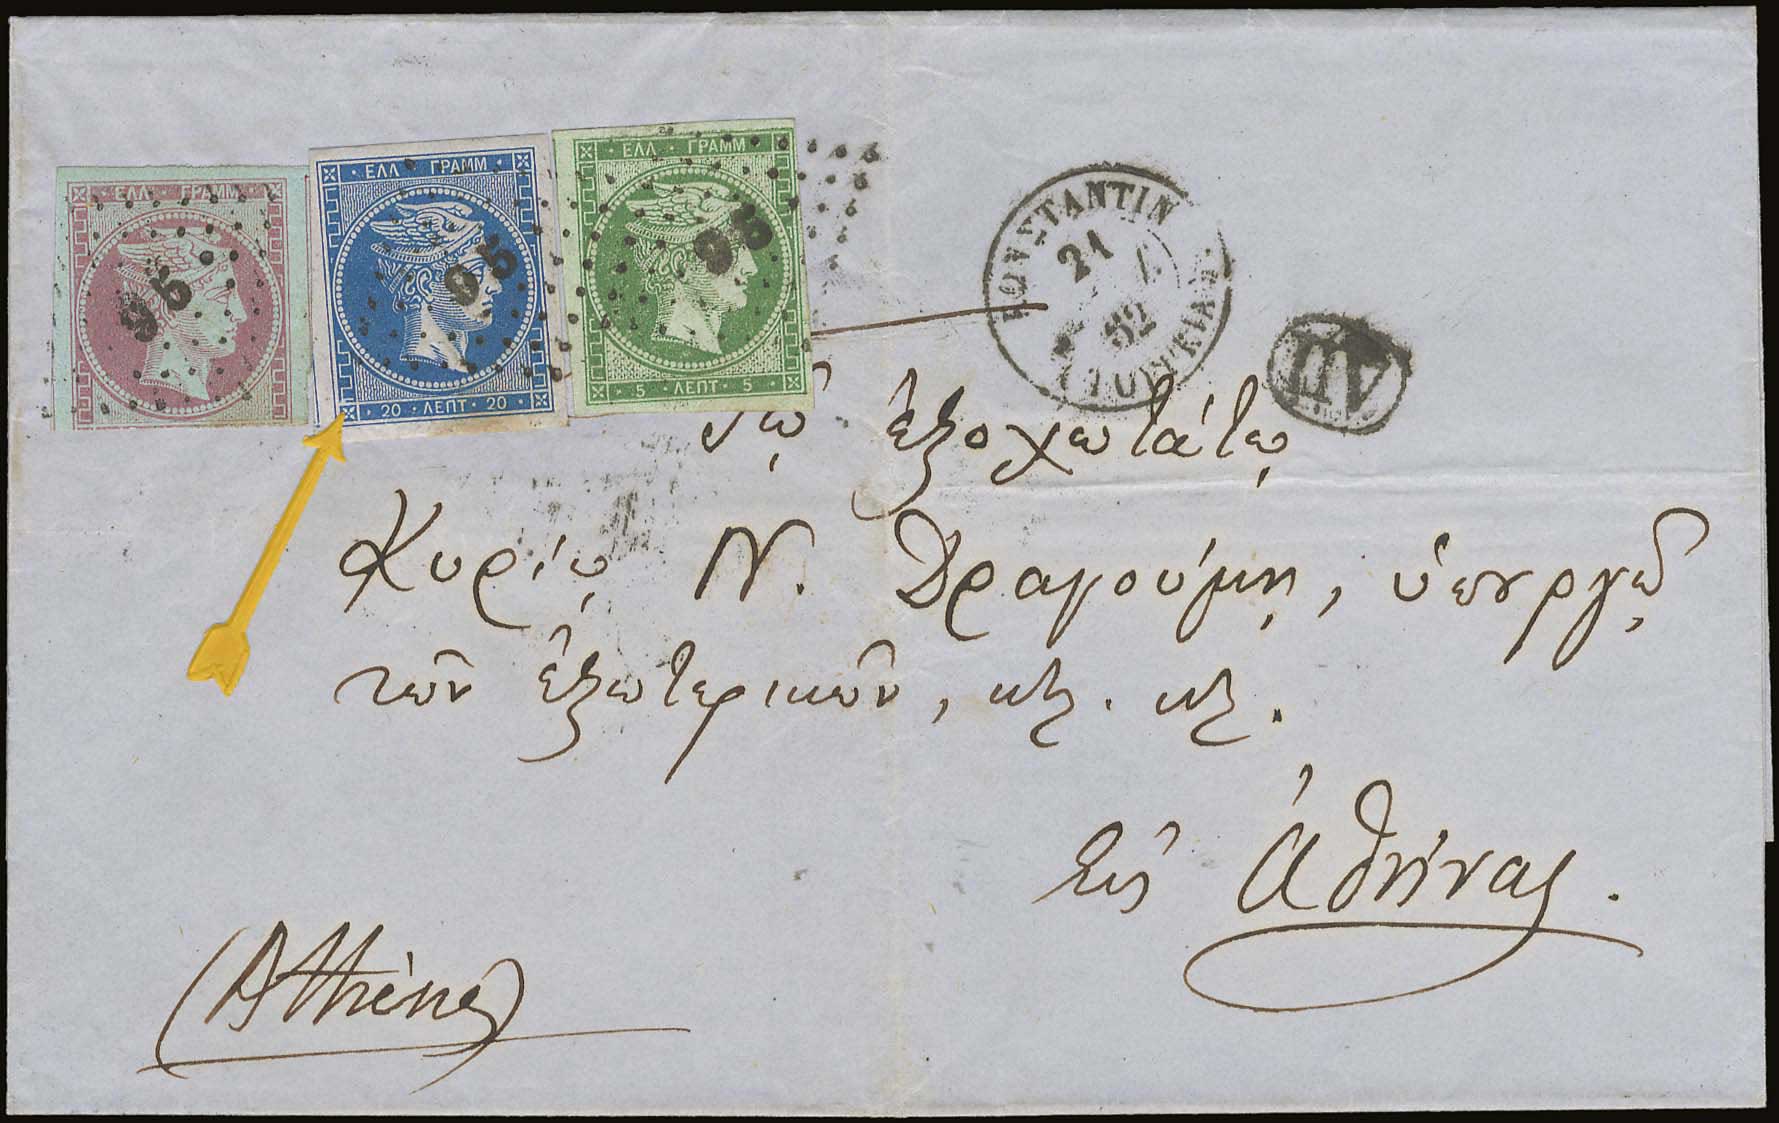 ΕΛΛ · ΓΡΑΜΜ
95
ΕΛΛ ΓΡΑΜΜ
95
20 · ΛΕΠΤ · 20
ΕΛΛ · ΓΡΑΜΜ
95
5 · ΛΕΠΤ · 5
ΚΩΝΣΤΑΝΤΙΝ
21
62
(ΤΟΥΡΚΙΑ)
Τῷ ἐξοχωτάτῳ
Κυρίῳ Ν. Δραγούμῃ, ὑπουργῷ
τῶν ἐξωτερικῶν, κτλ. κτλ.
Εἰς Ἀθήνας.
(Athènes)